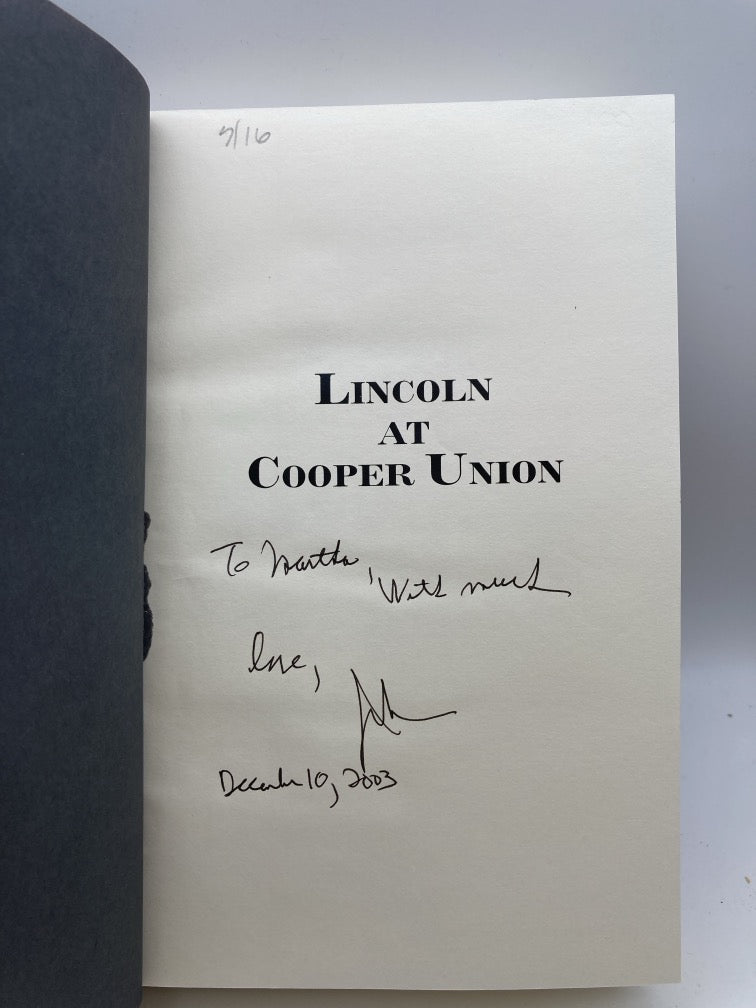 7/16
LINCOLN
AT
COOPER UNION
To Martha,
With much
love,
John
December 10, 2003